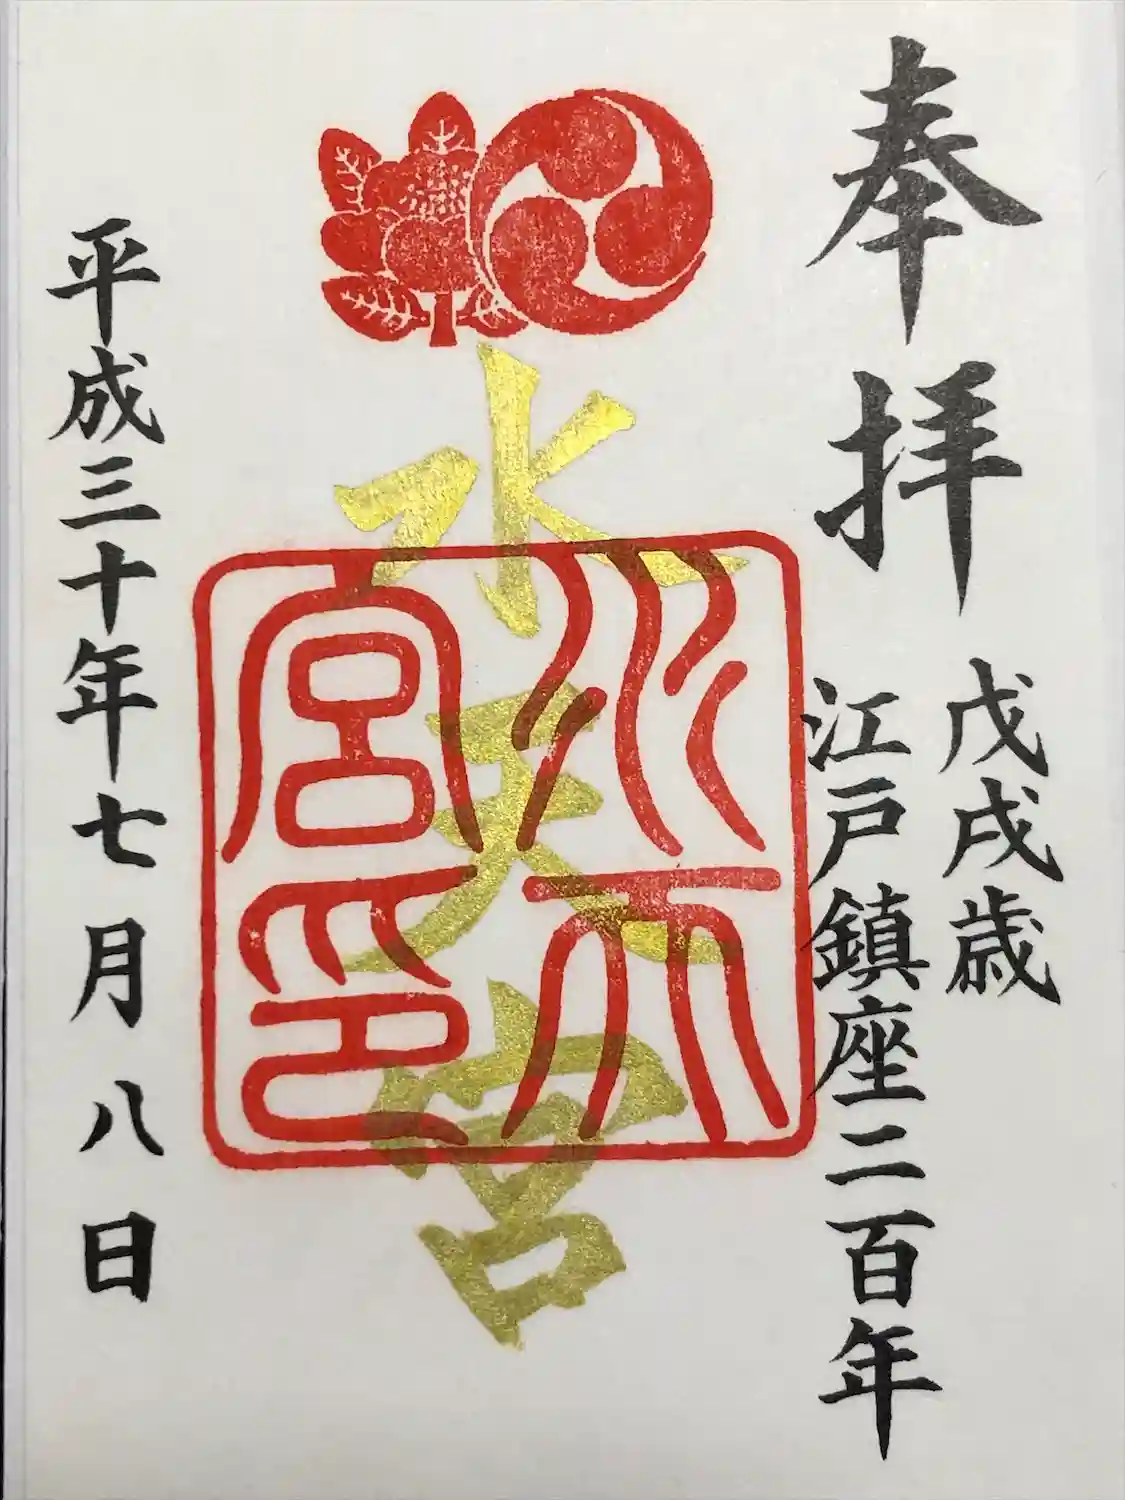 奉拝
戊戌歳
江戸鎮座二百年
水天宮
水天宮印
平成三十年七月八日